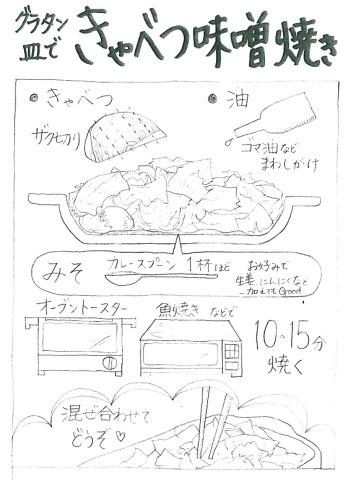 グラタン皿で
きゃべつ味噌焼き
・きゃべつ
ザク切り
・油
ゴマ油など
まわしがけ
みそ
カレースプーン1杯ほど
お好みで
生姜、にんにくなど
加えてもGood
オーブントースター
魚焼きなどで
10~15分
焼く
混ぜ合わせて
どうぞ♡